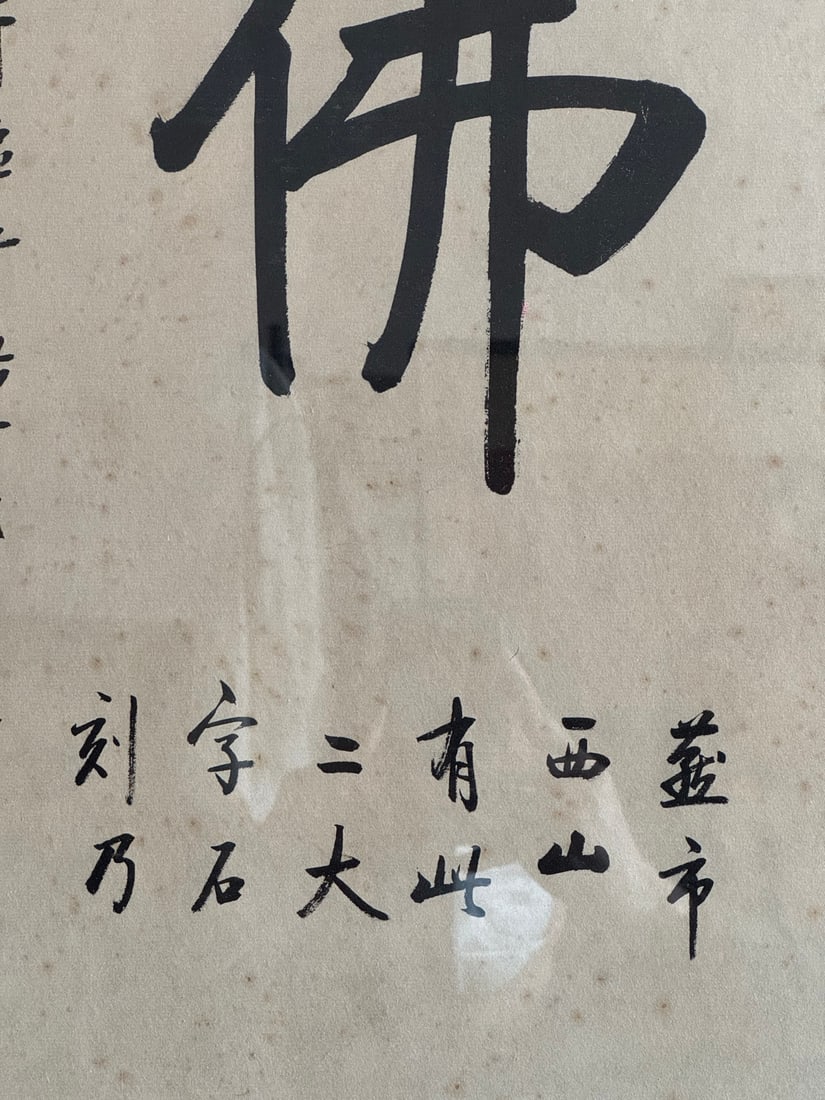 佛
市
西山
有此
二大
字石
刻乃